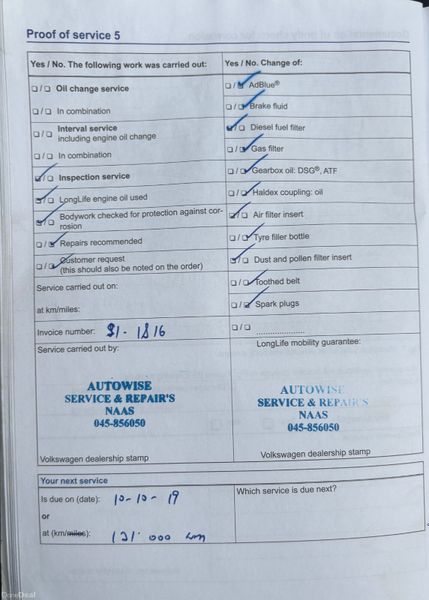 Proof of service 5
Yes / No. The following work was carried out:
Yes / No. Change of:
Oil change service
In combination
Interval service
including engine oil change
In combination
Inspection service
LongLife engine oil used
Bodywork checked for protection against cor-
rosion
Repairs recommended
Customer request
(this should also be noted on the order)
Service carried out on:
at km/miles:
Invoice number:
AdBlue®
Brake fluid
Diesel fuel filter
Gas filter
Gearbox oil: DSG®, ATF
Haldex coupling: oil
Air filter insert
Tyre filler bottle
Dust and pollen filter insert
Toothed belt
Spark plugs
....................
Service carried out by:
AUTOWISE
SERVICE & REPAIR'S
NAAS
045-856050
Volkswagen dealership stamp
LongLife mobility guarantee:
AUTOWISE
SERVICE & REPAIR'S
NAAS
045-856050
Volkswagen dealership stamp
Your next service
Is due on (date): 10-10-19
or
at (km/miles): 121.000 km
Which service is due next?
DoneDeal